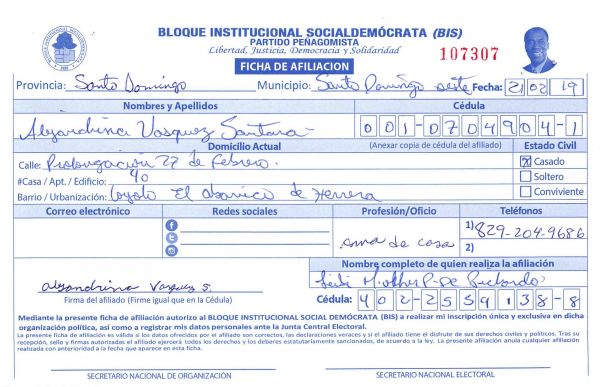 BLOQUE INSTITUCIONAL SOCIALDEMÓCRATA (BIS)
PARTIDO PEÑAGOMISTA
Libertad, Justicia, Democracia y Solidaridad
107307
FICHA DE AFILIACION
Provincia: Santo Domingo Municipio: Santo Domingo oeste Fecha: 21 02 19
Nombres y Apellidos Cédula
Alejandrina Vasquez Santana 001-0704904-1
Domicilio Actual (Anexar copia de cédula del afiliado) Estado Civil
Calle: Prolongación 27 de Febrero X Casado
#Casa / Apt. / Edificio: 40 Soltero
Barrio / Urbanización: El abanico de Herrera Conviviente
Correo electrónico Redes sociales Profesión/Oficio Teléfonos
ama de casa 1) 829-204-9686
2)
Nombre completo de quien realiza la afiliación
alejandrina Vasquez S.
Firma del afiliado (Firme igual que en la Cédula) Cédula: 402-2539138-8
Mediante la presente ficha de afiliación autorizo al BLOQUE INSTITUCIONAL SOCIAL DEMÓCRATA (BIS) a realizar mi inscripción única y exclusiva en dicha
organización política, así como a registrar mis datos personales ante la Junta Central Electoral.
La presente ficha de afiliación es válida si los datos ofrecidos por el afiliado son correctos, las declaraciones veraces y si el afiliado tiene el disfrute de sus derechos civiles y políticos. Tras su
recepción, sello y firmas autorizadas el afiliado ejercerá todos los derechos y los deberes estatutariamente sancionados, de acuerdo a la ley. La presente afiliación anula cualquier afiliación
realizada con anterioridad a la fecha que aparece en esta ficha.
SECRETARIO NACIONAL DE ORGANIZACIÓN SECRETARIO NACIONAL ELECTORAL